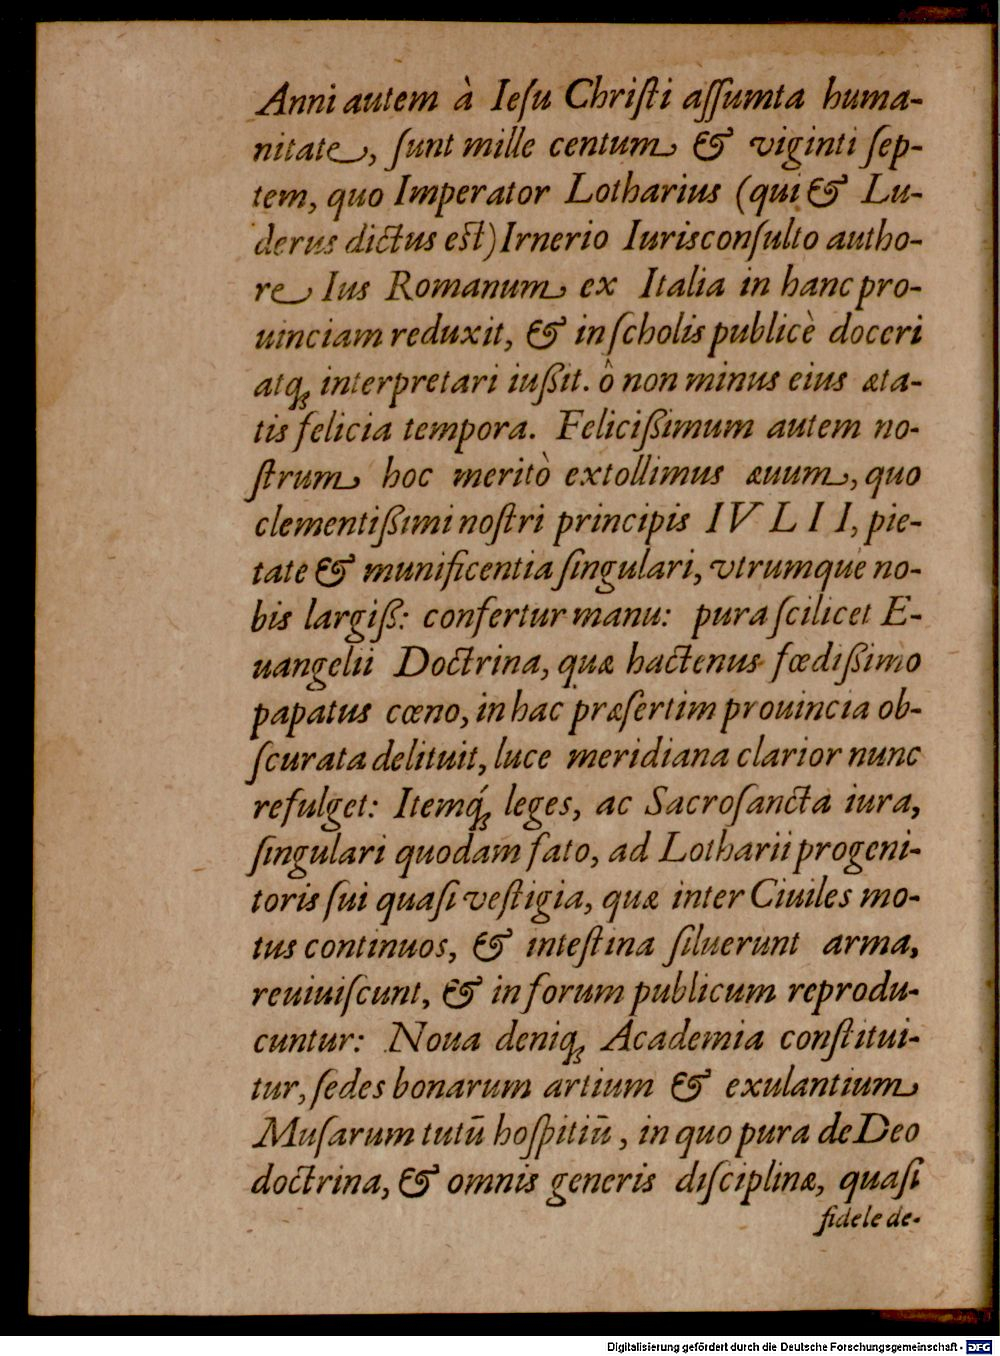 Anni autem à Ieſu Chriſti aſſumta huma-
nitate, ſunt mille centum & viginti ſep-
tem, quo Imperator Lotharius (qui & Lu-
derus dictus est) Irnerio Iurisconſulto autho-
re Ius Romanum ex Italia in hanc pro-
uinciam reduxit, & in ſcholis publicè doceri
atq; interpretari iußit. ô non minus eius æta-
tis felicia tempora. Felicißimum autem no-
ſtrum hoc meritò extollimus æuum, quo
clementißimi noſtri principis IVLII, pie-
tate & munificentia ſingulari, vtrumque no-
bis largiß: confertur manu: pura ſcilicet E-
uangelii Doctrina, quæ hactenus fœdißimo
papatus cœno, in hac præſertim prouincia ob-
ſcurata delituit, luce meridiana clarior nunc
refulget: Itemq́; leges, ac Sacroſancta iura,
ſingulari quodam fato, ad Lotharii progeni-
toris ſui quaſi veſtigia, quæ inter Ciuiles mo-
tus continuos, & inteſtina ſiluerunt arma,
reuiuiſcunt, & in forum publicum reprodu-
cuntur: Noua deniq; Academia conſtitui-
tur, ſedes bonarum artium & exulantium
Muſarum tutū hoſpitiū, in quo pura de Deo
doctrina, & omnis generis diſciplinæ, quaſi
fidele de-
Digitalisierung gefördert durch die Deutsche Forschungsgemeinschaft - DFG